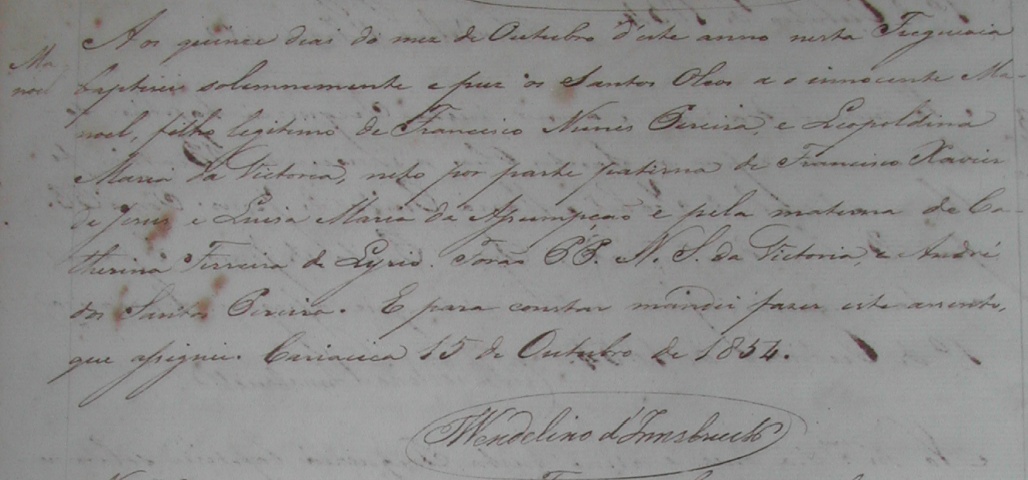 Ma
noel
Aos quinze dias do mez de Outubro d'este anno nesta Freguesia
baptisei solemnemente e puz os Santos Oleos a o innocente Ma-
noel, filho legitimo de Francisco Nunes Pereira, e Leopoldina
Maria da Victoria, neto por parte paterna de Francisco Xavier
de Jesus e Luisa Maria da Assumpção e pela materna de Ca-
therina Ferreira de Lyrio. Forão P.P. N. S. da Victoria, e André
dos Santos Pereira. E para constar mandei fazer este assento,
que assignei. Cariacica 15 de Outubro de 1854.
Wendelino d'Innsbruck